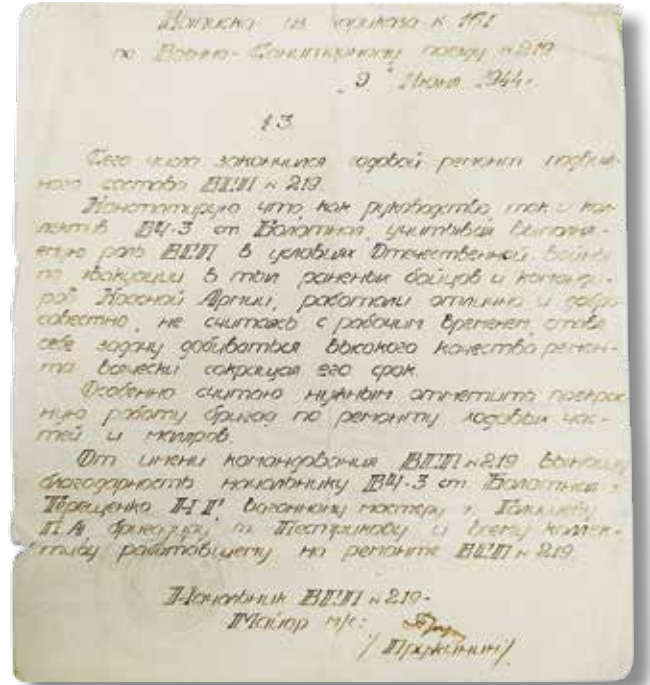 Выписка из приказа № 161
по Военно-Санитарному поезду № 219
"9" Июня 1944 г.
§ 3.
Сего число закончился годовой ремонт подвиж-
ного состава ВСП № 219.
Констатирую что, как руководство, так и кол-
лектив ВЧ-3 ст Болотная, учитывая выполня-
емую роль ВСП в условиях Отечественной войны
по эвакуации в тыл раненых бойцов и команди-
ров Красной Армии, работали отлично и добро-
совестно, не считаясь с рабочим временем, ставя
себе задачу добиваться высокого качества ремон-
та всячески сокращая его срок.
Особенно считаю нужным отметить прекрас-
ную работу бригад по ремонту ходовых час-
тей и маляров.
От имени командования ВСП № 219 выношу
благодарность начальнику ВЧ-3 ст Болотная т.
Терещенко Н Г, вагонному мастеру т.
П.А бригадиру т. Пестрикову и всему коллек-
тиву работавшему на ремонте ВСП № 219
Начальник ВСП № 219-
Майор м/с:
/ Пружинин /